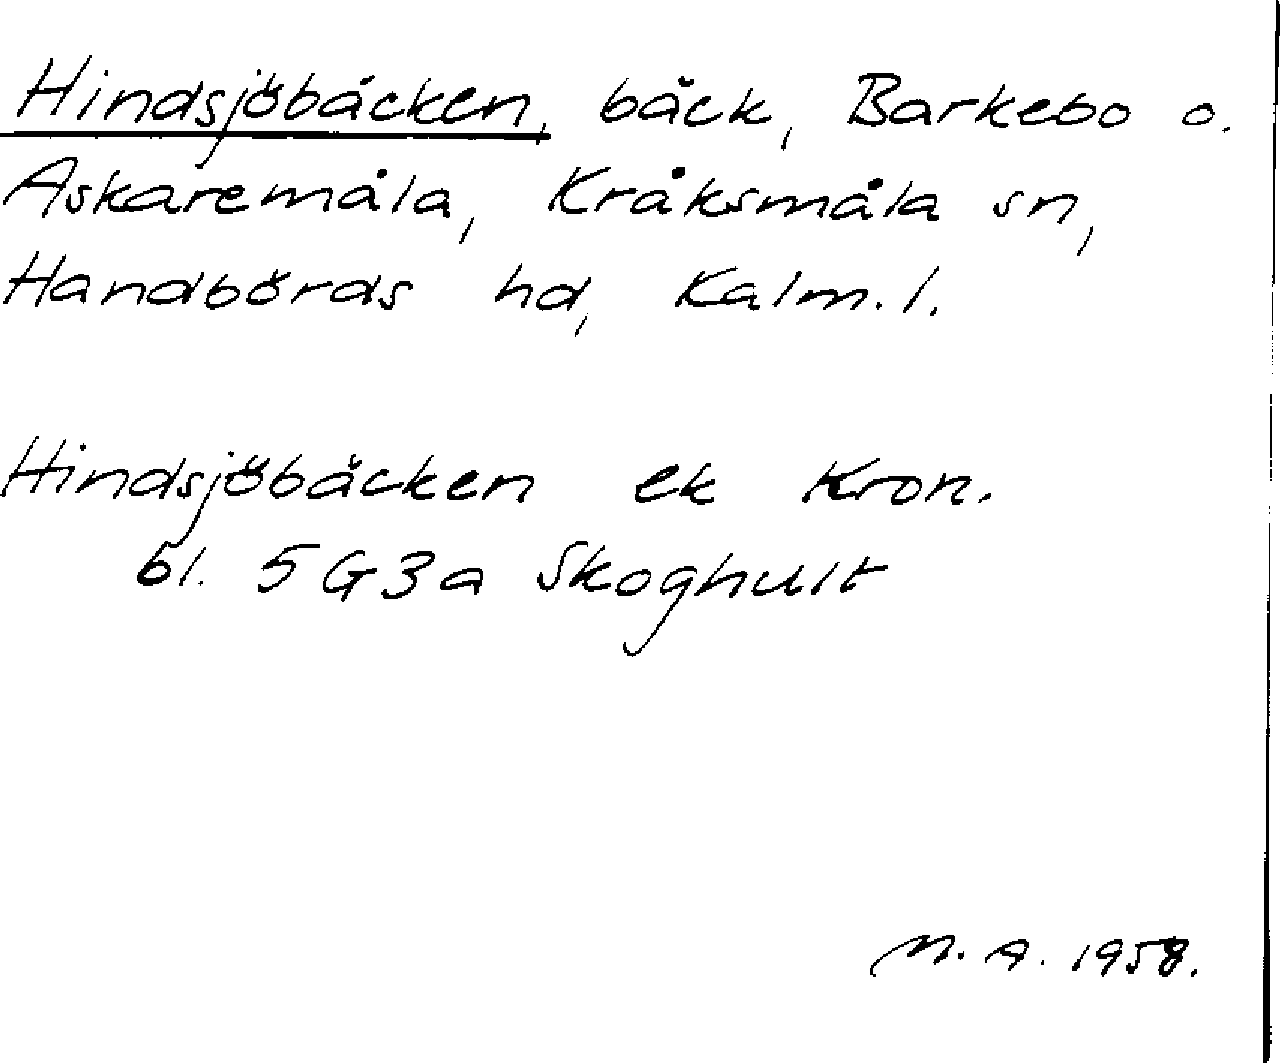 Hindsjöbäcken, bäck, Barkebo o.
Askaremåla, Kråksmåla sn,
Handbörds hd, Kalm. l.
Hindsjöbäcken ek Kron.
bl. 5G3a Skoghult
M. A. 1958.